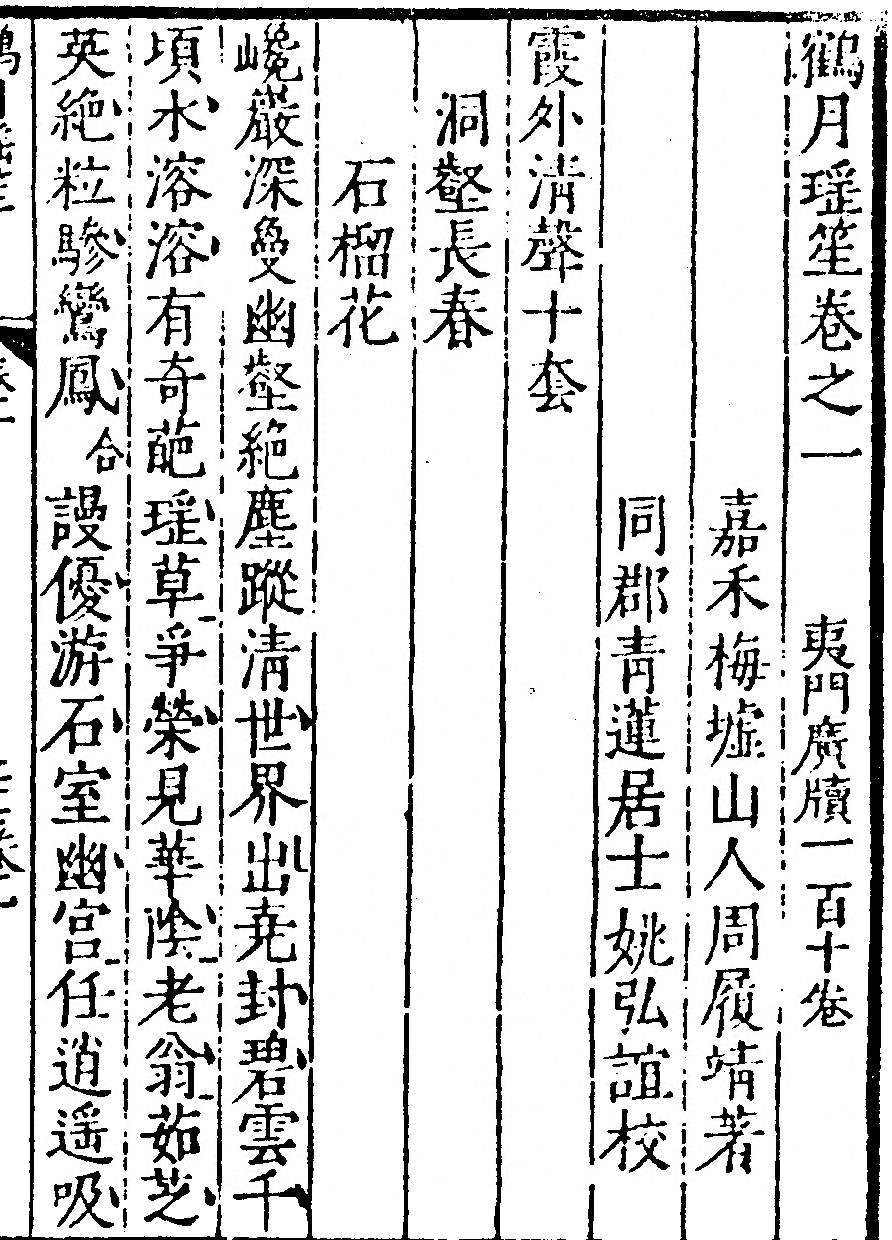 鶴月瑶笙卷之一　夷門廣牘一百十卷
嘉禾梅墟山人周履靖著
同郡青蓮居士姚弘誼校
霞外清聲十套
洞壑長春
石榴花
巉巖深曼幽壑絶塵蹤清世界出尭封碧雲千
頃水溶溶有奇葩瑶草爭榮見華陰老翁茹芝
英絶粒驂鸞鳳合謾優游石室幽宫任逍遥吸